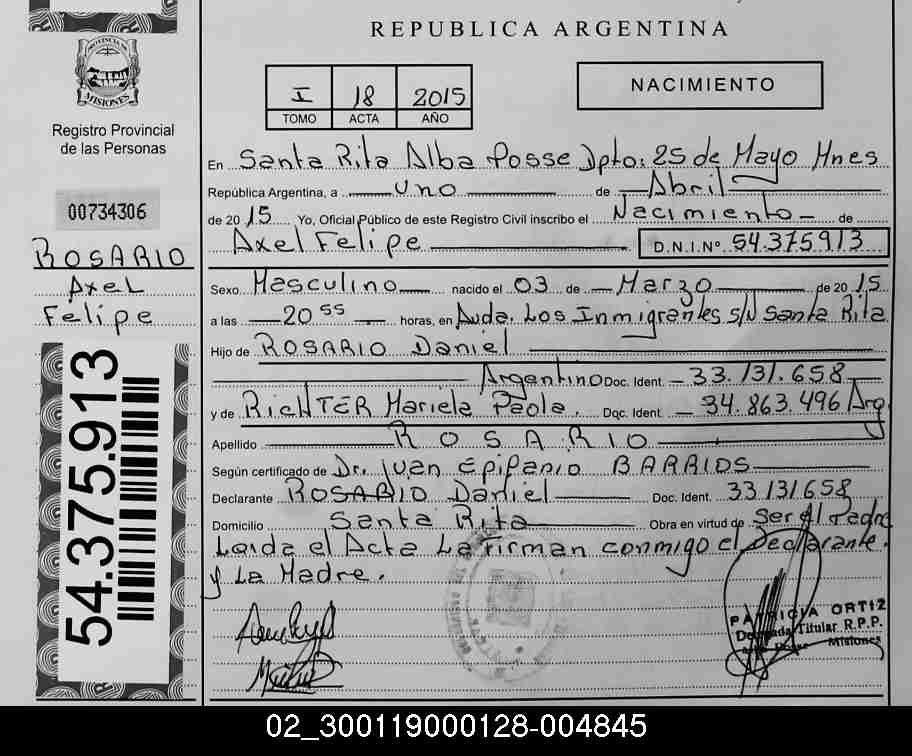 REPUBLICA ARGENTINA
PROVINCIA DE
MISIONES
Registro Provincial
de las Personas
00734306
ROSARIO
Axel
Felipe
54.375.913
I 18 2015
TOMO ACTA AÑO
NACIMIENTO
En Santa Rita Alba Posse Dpto: 25 de Mayo Mnes
República Argentina, a uno de Abril
de 2015 Yo, Oficial Público de este Registro Civil inscribo el Nacimiento de
Axel Felipe D.N.I.Nº. 54.375913
Sexo Masculino nacido el 03 de Marzo de 2015
a las 20 55 horas, en Avda. Los Inmigrantes s/N Santa Rita
Hijo de ROSARIO Daniel
Argentino Doc. Ident. 33.131.658
y de RICHTER Mariela Paola. Doc. Ident. 34.863.496 Arg
Apellido ROSARIO
Según certificado de Dr. Juan Epifanio BARRIOS
Declarante ROSARIO Daniel Doc. Ident. 33131658
Domicilio Santa Rita Obra en virtud de Ser el Padre
Leida el Acta La Firman conmigo el Declarante.
y La Madre.
PATRICIA ORTIZ
Delegada Titular R.P.P.
Posse Misiones
02_300119000128-004845